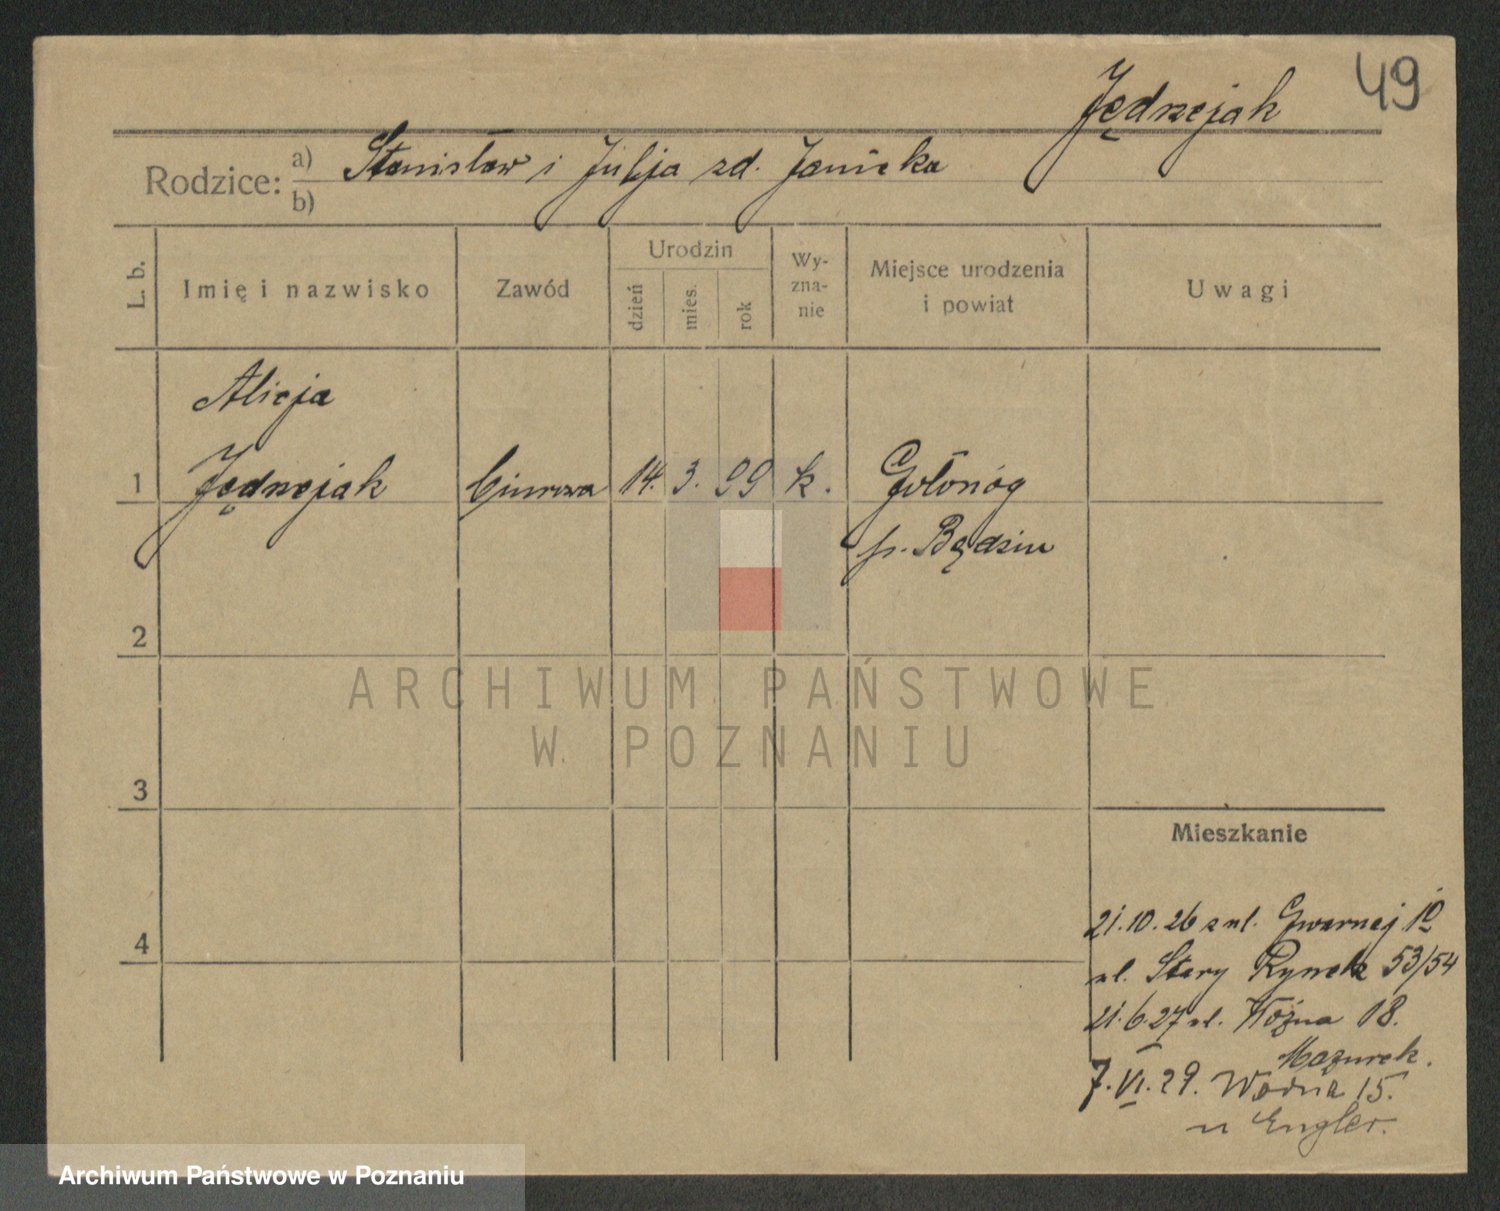 49
Jędrzejak
Rodzice: a) Stanisław i Julja zd. Janicka
b)
L. b. Imię i nazwisko Zawód Urodzin dzień mies. rok Wyznanie Miejsce urodzenia i powiat Uwagi
Alicja
1 Jędrzejak biurowa 14. 3. 99 k. Gołonóg
p. Będzin
2
ARCHIWUM PAŃSTWOWE
W POZNANIU
3
Mieszkanie
4
21.10.26 z ul. Gwarnej 10
ul. Stary Rynek 53/54
21.6.27 ul. Woźna 18.
Mazurek.
7.VI.29. Wodna 15.
u Engler.
Archiwum Państwowe w Poznaniu